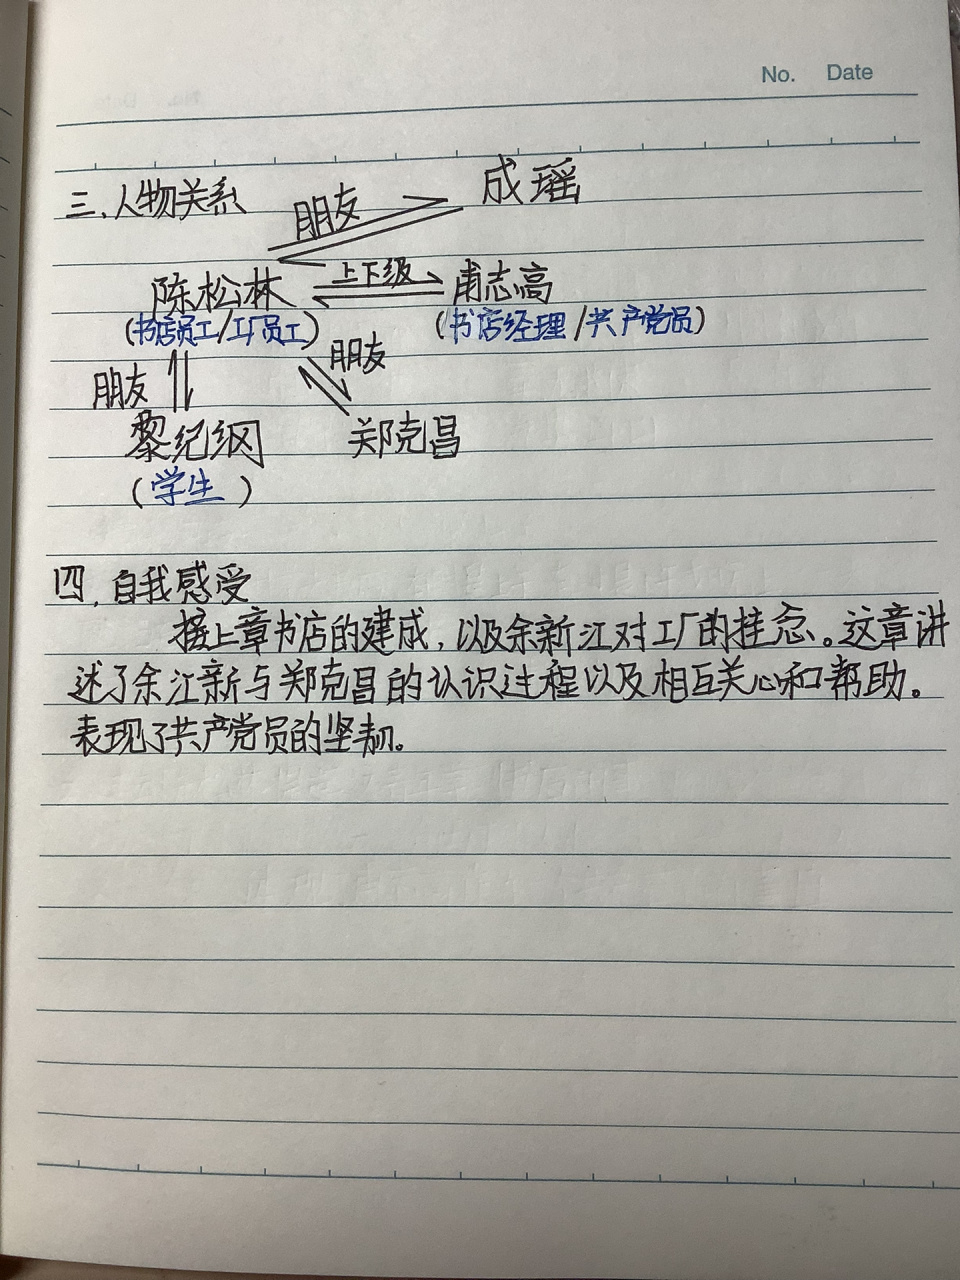 No. Date
三.人物关系
朋友
成瑶
陈松林
上下级
甫志高
(书店员工/工厂员工)
(书店经理/共产党员)
朋友
朋友
黎纪纲
郑克昌
(学生)
四.自我感受
接上章书店的建成，以及余新江对工厂的挂念。这章讲
述了余江新与郑克昌的认识过程以及相互关心和帮助。
表现了共产党员的坚韧。